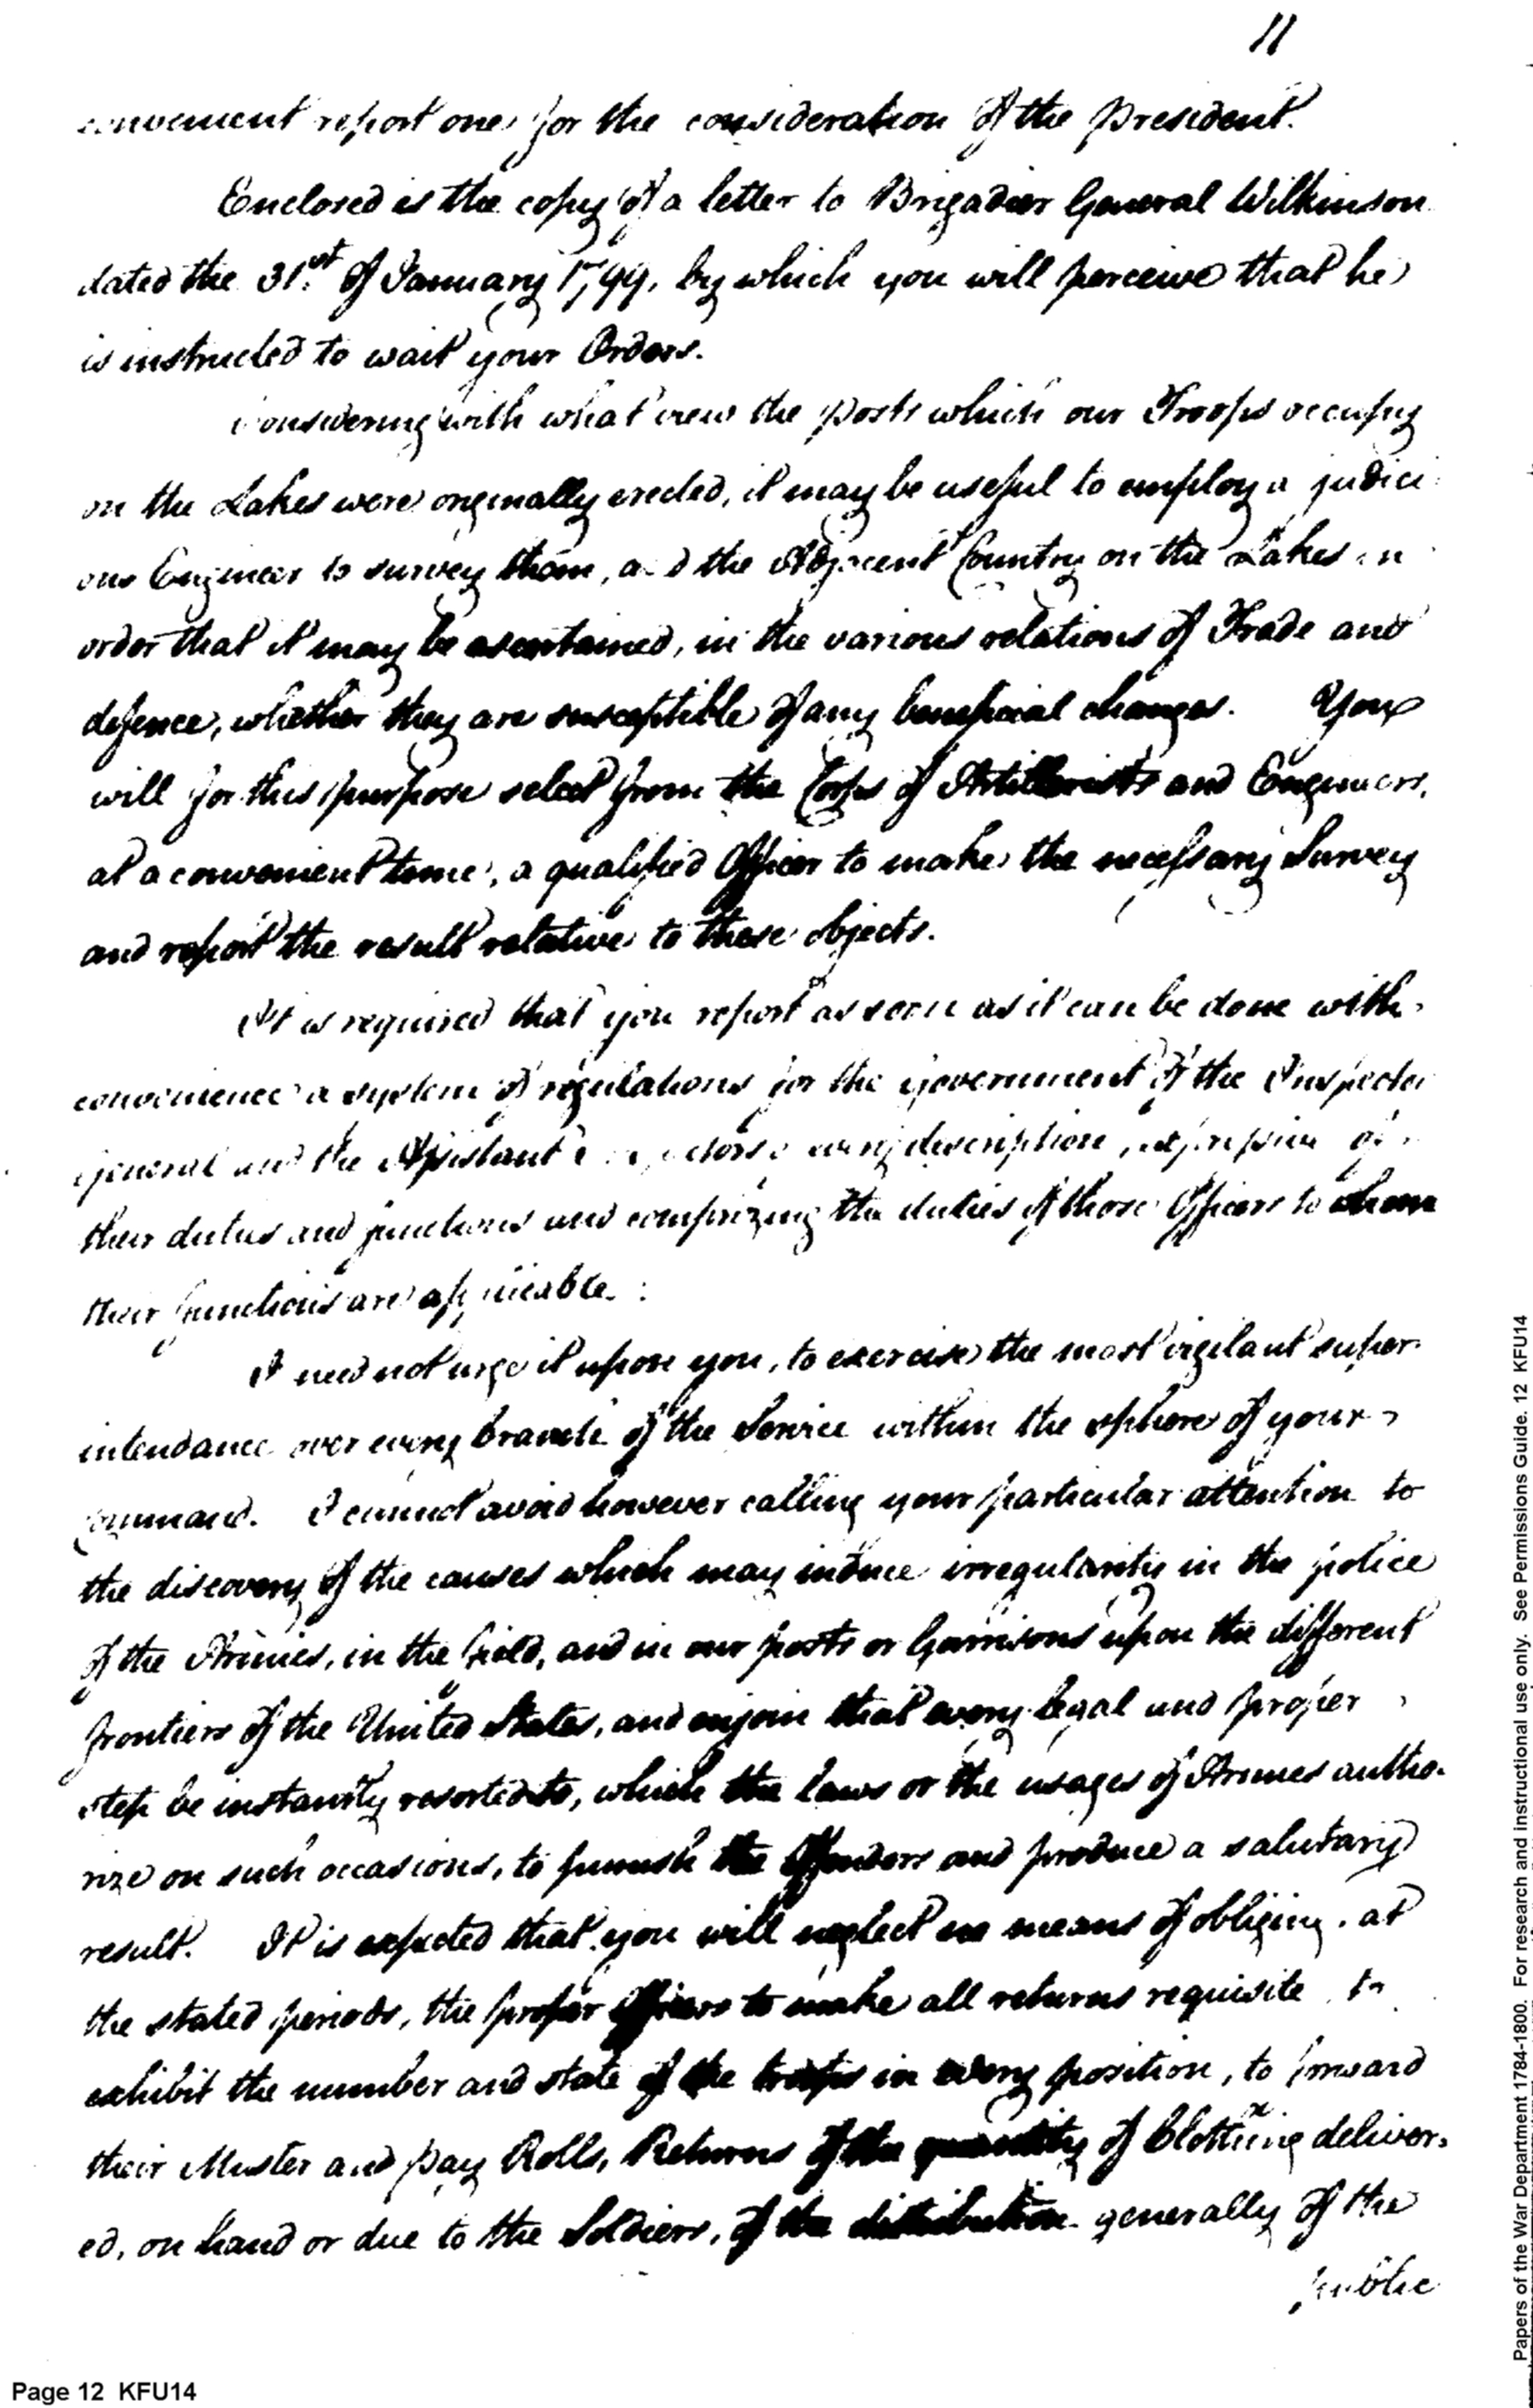 11
convenient report one for the consideration of the President.
Enclosed is the copy of a letter to Brigadier General Wilkinson
dated the 31st of January 1799, by which you will perceive that he
is instructed to wait your Orders.
Considering with what view the posts which our Troops occupy
on the Lakes were originally erected, it may be useful to employ a judici
ous Engineer to survey them, and the Adjacent Country on the Lakes in
order that it may be ascertained, in the various relations of Trade and
defence, whether they are susceptible of any beneficial changes. You
will for this purpose select from the Corps of Artillerists and Engineers,
at a convenient time, a qualified Officer to make the necessary Survey
and report the result relative to these objects.
It is required that you report as soon as it can be done with
convenience a system of regulations for the government of the Inspector
general and the Assistant every description, expressive of
their duties and functions and comprizing the duties of those Officers to whom
their functions are applicable.
I need not urge it upon you, to exercise the most vigilant super-
intendance over every branch of the Service within the sphere of your
command. I cannot avoid however calling your particular attention to
the discovery of the causes which may induce irregularity in the police
of the Armies, in the field, and in our posts or Garrisons upon the different
frontiers of the United States, and enjoin that every legal and proper
step be instantly resorted to, which the laws or the usages of Armies autho-
rize on such occasions, to punish the Offenders and produce a salutary
result. It is expected that you will neglect no means of obliging, at
the stated periods, the proper Officers to make all returns requisite to
exhibit the number and state of the troops in every position, to forward
their Muster and pay Rolls, Returns of the quantity of Clothing deliver-
ed, on hand or due to the Soldiers, of the distribution generally of the
public
Page 12 KFU14
Papers of the War Department 1784-1800. For research and instructional use only. See Permissions Guide. 12 KFU14